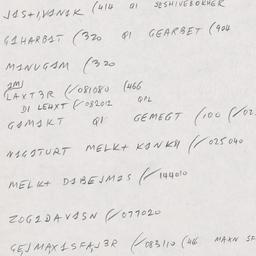 JAS+IVANAK (414 QI JESHIVEBOKHER
GAHARBAT (320 QI GEARBET (904
MANUGAM (320
LAXT3R (✓081080 (466
DI LEHXT (✓082012 QPL
GAMAKT QI GEMEGT (100 (✓02
NAGATURT MELK+ KANKH (✓025040
MELK+ DABEJMAS (✓144010
ZOGADAVASN (✓077020
GEJMAXASFAJ3R (✓083110 (46 MAXN SF